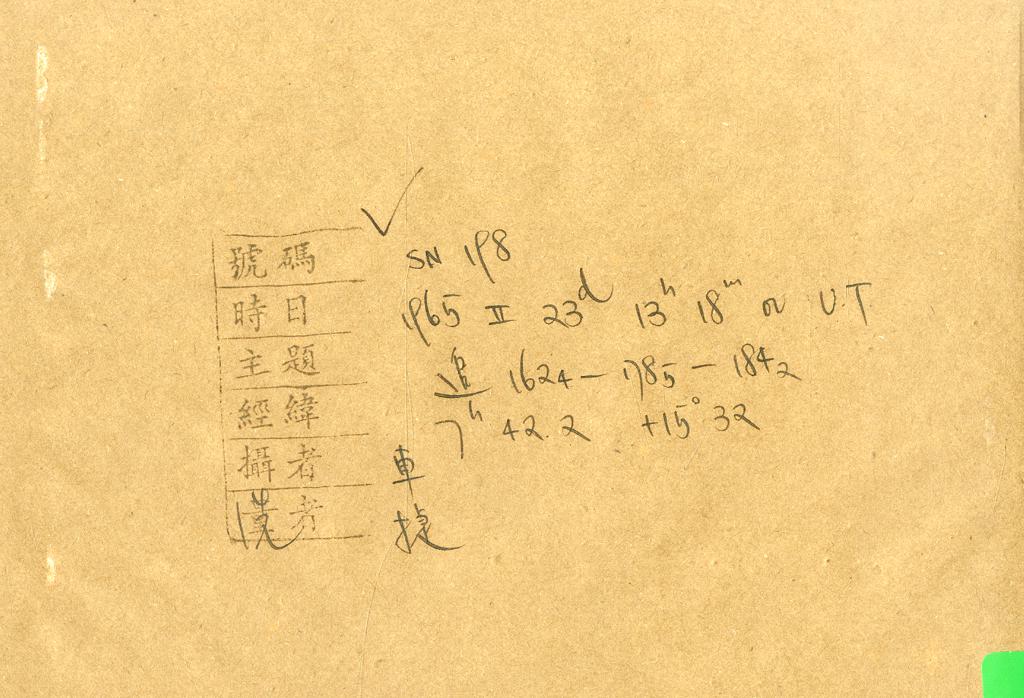 ✓
號碼 SN 198
時日 1965 II 23d 13h 18m U.T.
主題 追 1624 – 1785 – 1842
經緯 7h 42.2 +15° 32
攝者 車
者 捷